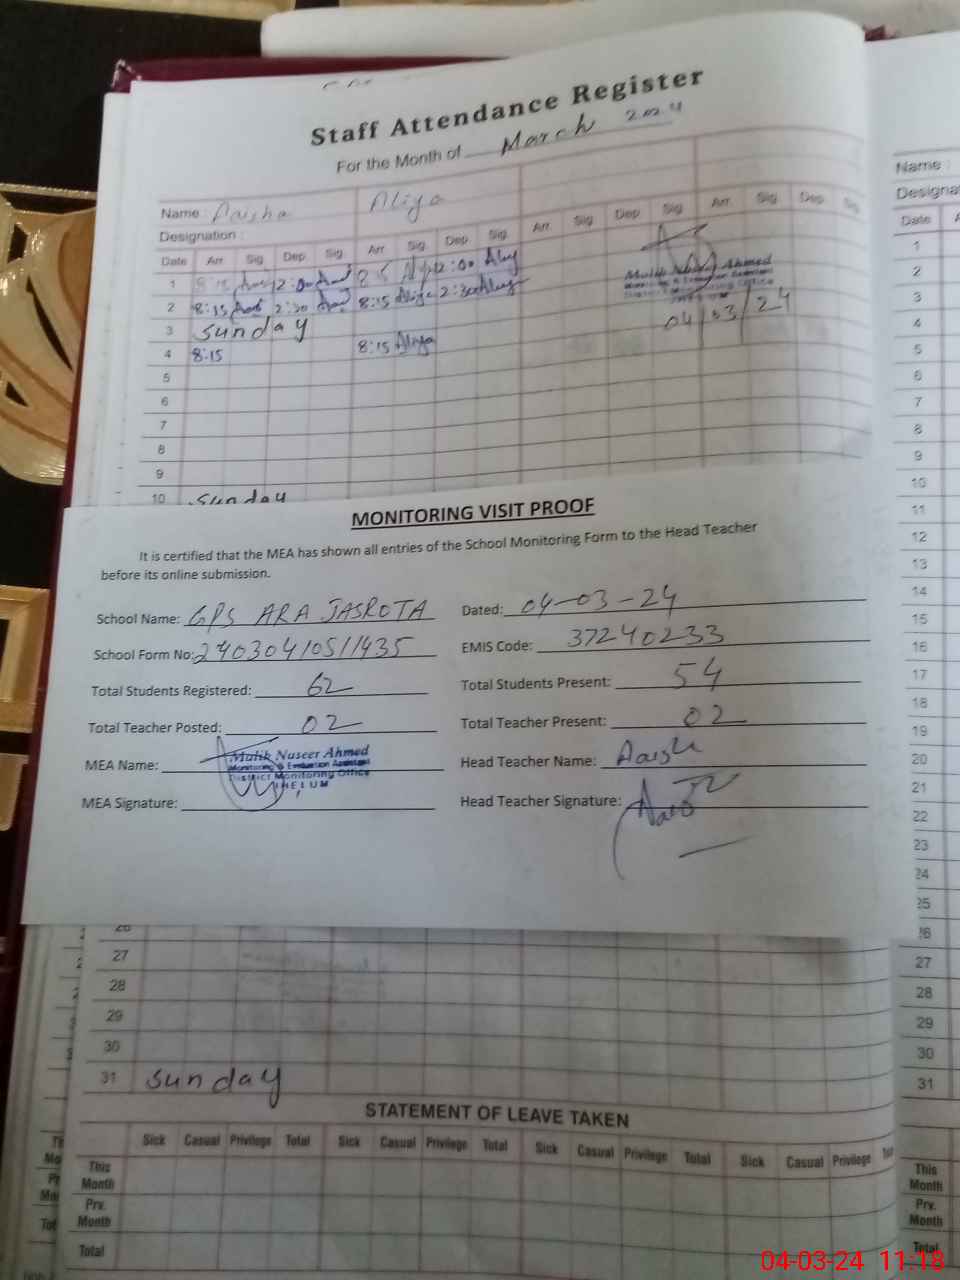 Staff Attendance Register
For the Month of March 2024
Name : Aaisha Aliya
Designation :
Date Arr Sig Dep Sig Arr Sig Dep Sig Arr Sig Dep Sig Arr Sig Dep Sig
1 8:15 12:00 8:15 12:00 Aliy
2 8:15 2:30 8:15 Aliya 2:30
3 Sunday
4 8:15 8:15 Aliya
5
6
7
8
9
10 Sunday
Malik Naseer Ahmed
Monitoring & Evaluation Assistant
District Monitoring Office
04/03/24
MONITORING VISIT PROOF
It is certified that the MEA has shown all entries of the School Monitoring Form to the Head Teacher
before its online submission.
School Name: GPS ARA JASROTA Dated: 04-03-24
School Form No: 24030410511435 EMIS Code: 37240233
Total Students Registered: 62 Total Students Present: 54
Total Teacher Posted: 02 Total Teacher Present: 02
MEA Name: Malik Naseer Ahmed
Monitoring & Evaluation Assistant
District Monitoring Office
JHELUM
Head Teacher Name: Aaish
MEA Signature: Head Teacher Signature:
26
27
28
29
30
31 Sunday
STATEMENT OF LEAVE TAKEN
Sick Casual Privilege Total Sick Casual Privilege Total Sick Casual Privilege Total Sick Casual Privilege
This Month
Prv. Month
Total
Name :
Designa
Date
1
2
3
4
5
6
7
8
9
10
11
12
13
14
15
16
17
18
19
20
21
22
23
24
25
26
27
28
29
30
31
This Month
Prv. Month
Total
04-03-24 11:18